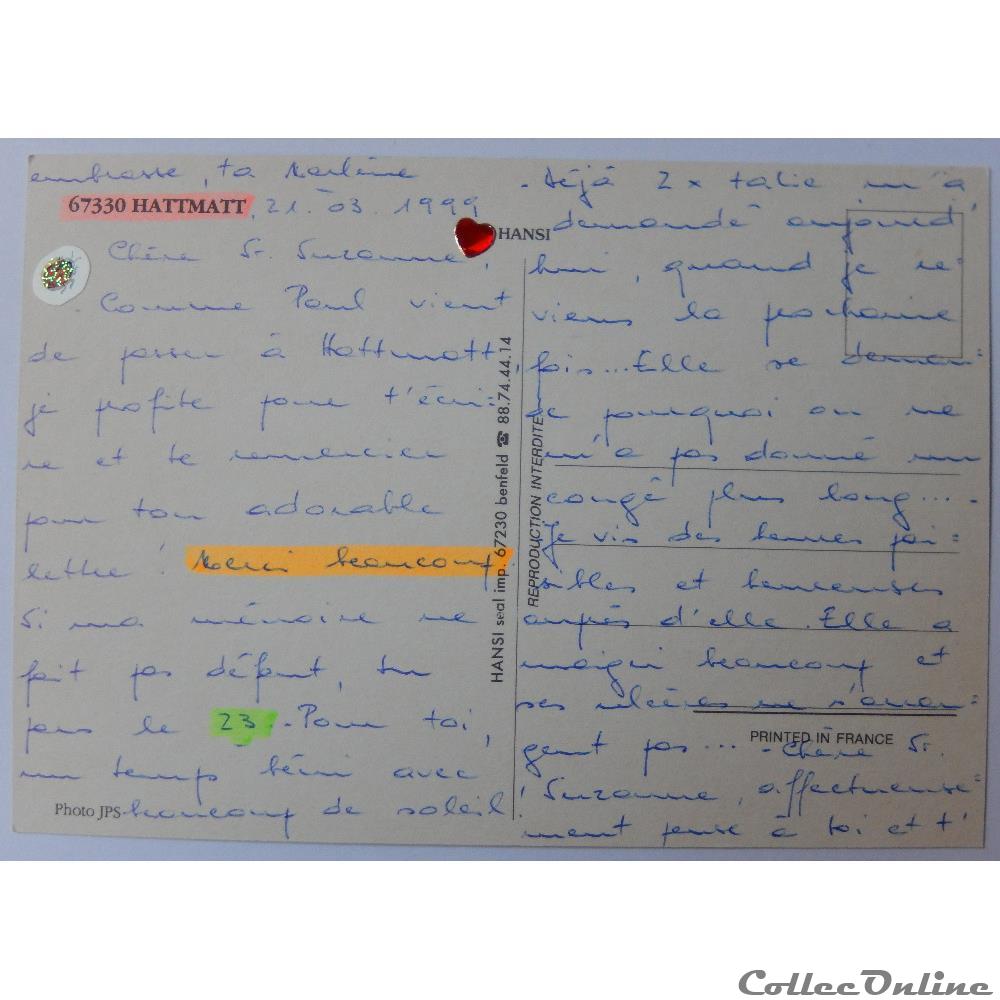 67330 HATTMATT, 21. 03. 1999
Chère Sr. Suzanne,
. Comme Paul vient
de passer à Hattmatt,
je profite pour t'écri=
re et te remercier
pour ton adorable
lettre! Merci beaucoup.
Si ma mémoire ne
fait pas défaut, tu
pars le 23. - Pour toi,
un temps béni avec
beaucoup de soleil!
Photo JPS
HANSI
HANSI seal imp. 67230 benfeld ☎ 88.74.44.14
REPRODUCTION INTERDITE
- Déjà 2 x talie m'a
demandé aujourd'
hui, quand je re=
viens la prochaine
fois... Elle se deman=
de pourquoi on ne
m'a pas donné un
congé plus long... -
Je vis des heures pai=
sibles et heureuses
auprès d'elle. Elle a
maigri beaucoup et
ses ulcères ne s'arran=
gent pas... - Chère Sr.
PRINTED IN FRANCE
Suzanne, affectueuse=
ment pense à toi et t'
embrasse, ta Marlène
CollecOnline